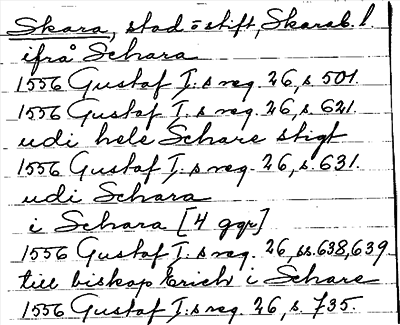 Skara, stad o stift, Skarab. l.
ifrå Schara
1556 Gustaf I:s reg. 26, s. 501.
1556 Gustaf I:s reg. 26, s. 621.
udi hele Schare stigt
1556 Gustaf I:s reg. 26, s. 631.
udi Schara
i Schara [4 ggr]
1556 Gustaf I:s reg. 26, ss. 638, 639
till biskop Erich i Schare
1556 Gustaf I:s reg. 26, s. 735.